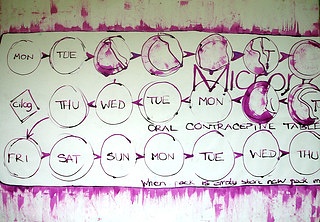 MON TUE ST
Micro
Cilag THU WED TUE MON ST
ORAL CONTRACEPTIVE TABLE
FRI SAT SUN MON TUE WED THU
When pack is empty start new pack